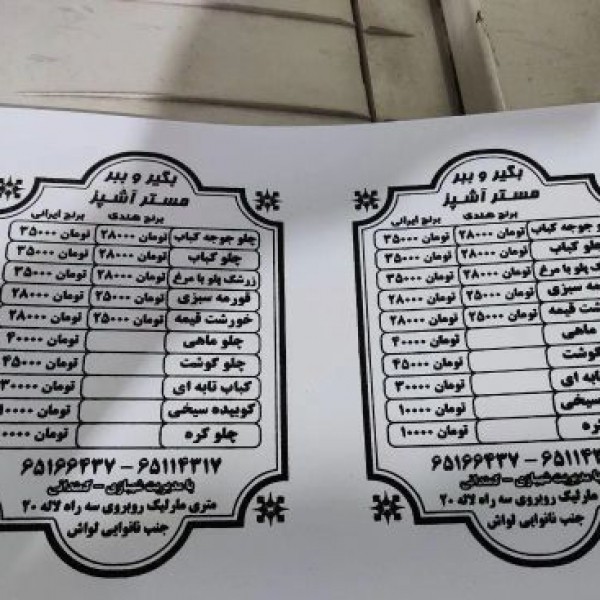 بگیر و ببر
مستر آشپز
برنج هندی برنج ایرانی
چلو جوجه کباب ۲۸۰۰۰ تومان ۳۵۰۰۰ تومان
چلو کباب ۲۸۰۰۰ تومان ۳۵۰۰۰ تومان
زرشک پلو با مرغ ۲۸۰۰۰ تومان ۳۵۰۰۰ تومان
قورمه سبزی ۲۵۰۰۰ تومان ۲۸۰۰۰ تومان
خورشت قیمه ۲۵۰۰۰ تومان ۲۸۰۰۰ تومان
چلو ماهی ۴۰۰۰۰ تومان
چلو گوشت ۴۵۰۰۰ تومان
کباب تابه ای ۳۰۰۰۰ تومان
کوبیده سیخی ۱۰۰۰۰ تومان
چلو کره ۱۰۰۰۰ تومان
۶۵۱۶۶۴۳۷ - ۶۵۱۱۴۳۱۷
با مدیریت شیرازی -
متری مارلیک روبروی سه راه لاله ۲۰
جنب نانوایی لواش
بگیر و ببر
مستر آشپز
برنج هندی برنج ایرانی
جوجه کباب ۲۸۰۰۰ تومان ۳۵۰۰۰ تومان
چلو کباب ۲۸۰۰۰ تومان ۳۵۰۰۰ تومان
پلو با مرغ ۲۸۰۰۰ تومان ۳۵۰۰۰ تومان
سبزی ۲۵۰۰۰ تومان ۲۸۰۰۰ تومان
قیمه ۲۵۰۰۰ تومان ۲۸۰۰۰ تومان
ماهی ۴۰۰۰۰ تومان
گوشت ۴۵۰۰۰ تومان
تابه ای ۳۰۰۰۰ تومان
سیخی ۱۰۰۰۰ تومان
کره ۱۰۰۰۰ تومان
۶۵۱۶۶۴۳۷ -
با مدیریت شیرازی -
متری مارلیک روبروی سه راه لاله ۲۰
جنب نانوایی لواش